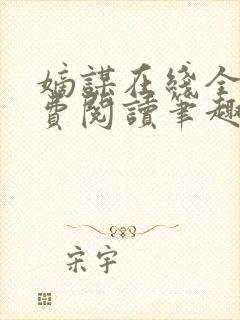 嫡謀在綫全
費閱讀筆趣
宋宇